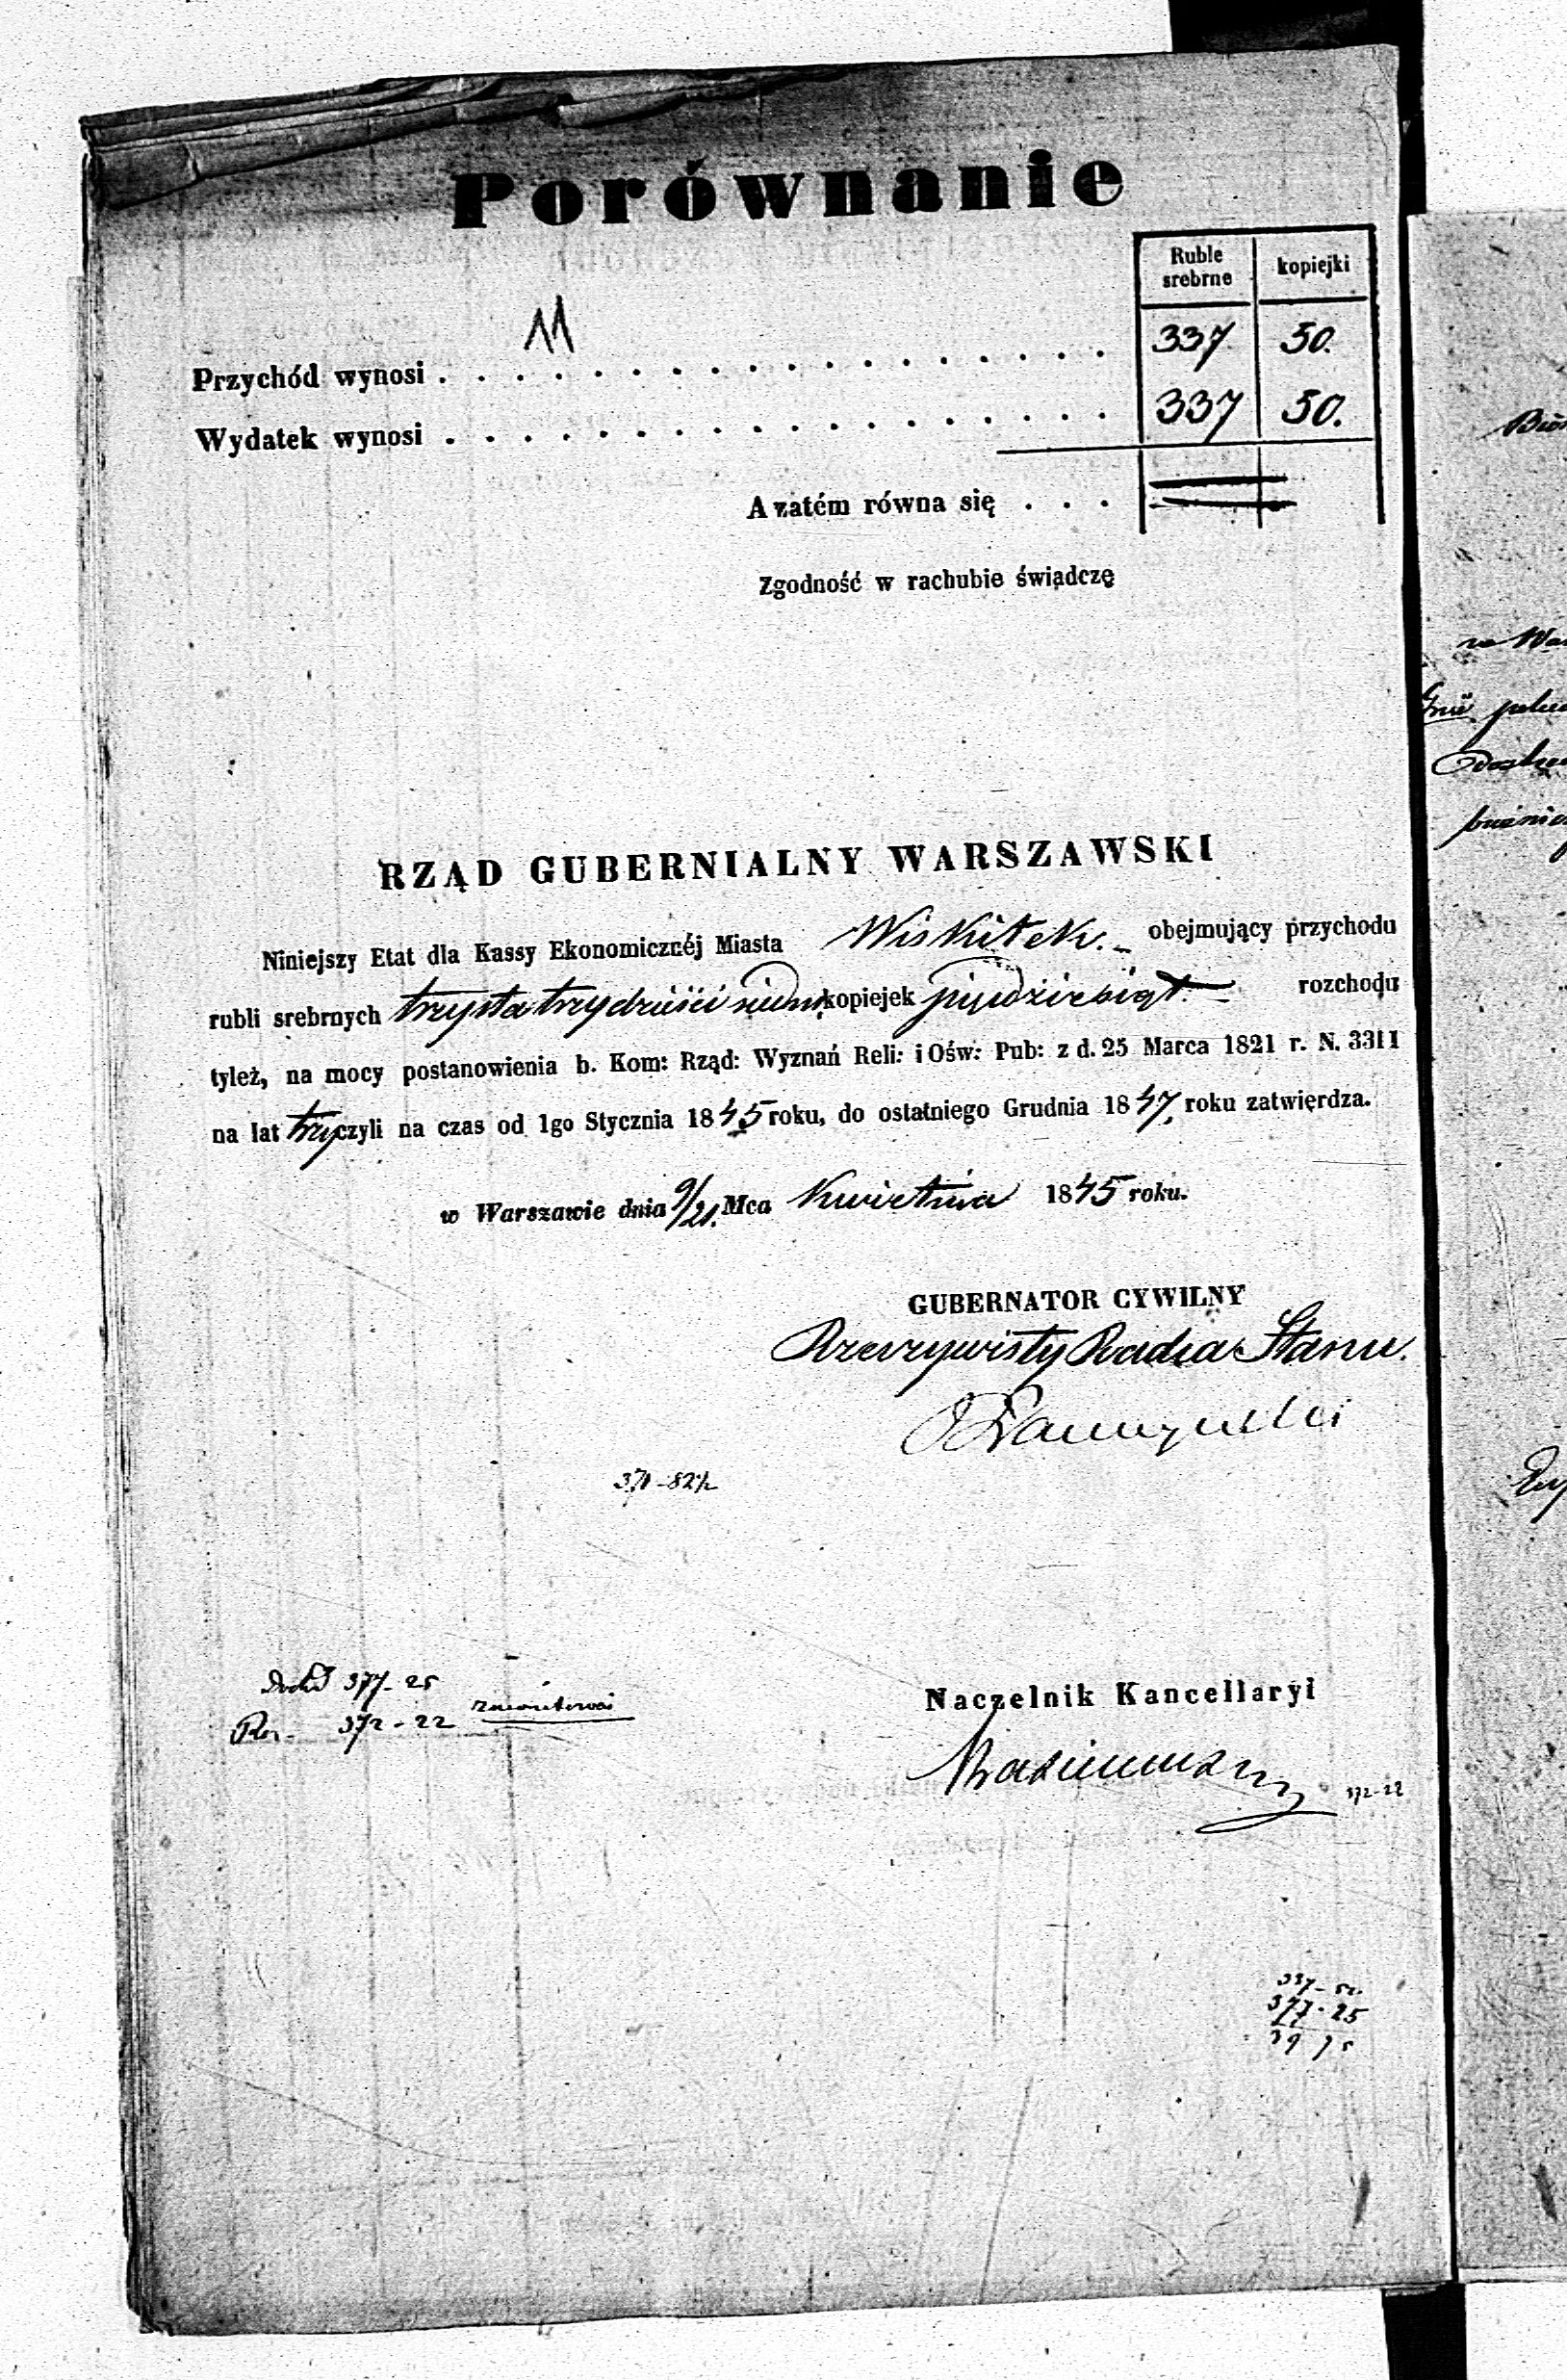 Porównanie
Ruble srebrne kopiejki
Przychód wynosi . . . . . . . . . . . . . . . . . . 337 50.
Wydatek wynosi . . . . . . . . . . . . . . . . . . 337 50.
A zatém równa się . . .
Zgodność w rachubie świadczę
RZĄD GUBERNIALNY WARSZAWSKI
Niniejszy Etat dla Kassy Ekonomicznéj Miasta Wiskitek. obejmujący przychodu
rubli srebrnych trzysta trzydzieści siedm kopiejek pięćdziesiąt. rozchodu
tyleż, na mocy postanowienia b. Kom: Rząd: Wyznań Reli: i Ośw: Pub: z d. 25 Marca 1821 r. N. 3311
na lat trzy czyli na czas od 1go Stycznia 1845 roku, do ostatniego Grudnia 1847 roku zatwierdza.
w Warszawie dnia 9/21. Mca Kwietnia 1845 roku.
GUBERNATOR CYWILNY
Rzeczywisty Radca Stanu.
Naczelnik Kancellaryi
377-25
372-22
372-22
377-25
39 75